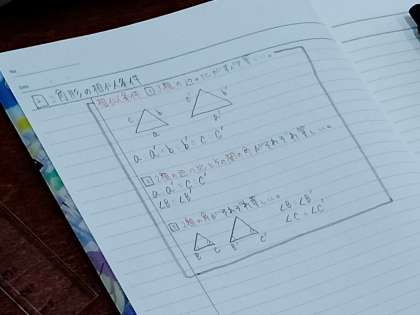 三角形の相似条件
相似条件 ① 3組の辺の比がすべて等しい。
c b c' b'
a a'
a:a'=b:b'=c:c'
② 2組の辺の比とその間の角がそれぞれ等しい。
a:a'=c:c'
∠B=∠B'
③ 2組の角がそれぞれ等しい。
∠B=∠B'
B C B' C' ∠C=∠C'